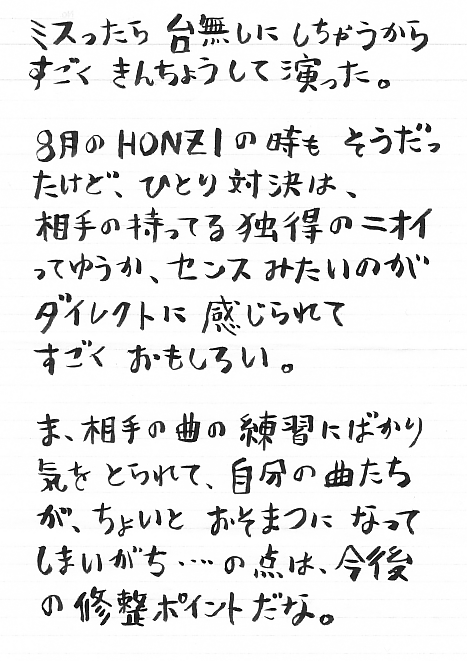 ミスったら 台無しに しちゃうから
すごく きんちょうして 演った。
8月の HONZI の 時も そうだっ
たけど、ひとり 対決は、
相手の 持ってる 独得の ニオイ
ってゆうか、センス みたいのが
ダイレクトに 感じられて
すごく おもしろい。
ま、相手の 曲の 練習にばかり
気を とられて、自分の 曲たち
が、ちょいと おそまつに なって
しまいがち‥‥の点は、今後
の 修整ポイントだな。